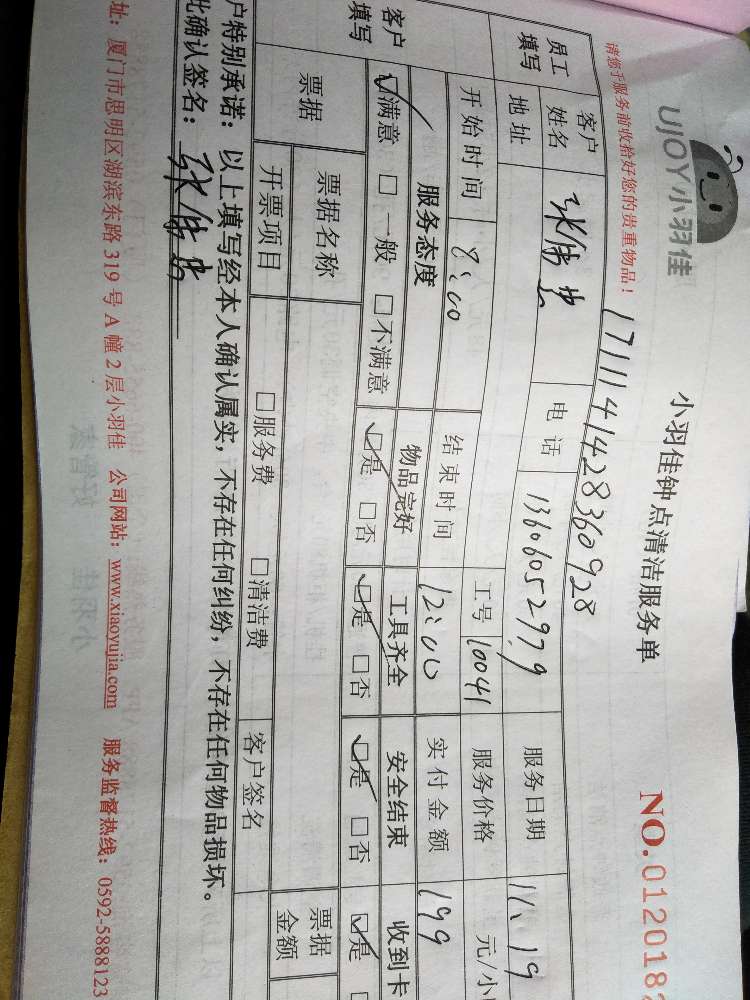 UJOY小羽佳
小羽佳钟点清洁服务单
NO.012018
请您于服务前收拾好您的贵重物品！
1711141428360928
员工填写
客户姓名
电话 13606052979
服务日期 11.19
地址
工号 10041
服务价格
元/小
开始时间 8:00
结束时间 12:00
实付金额 199
客户填写
服务态度
物品完好
工具齐全
安全结束
收到卡
☑满意 □一般 □不满意
☑是 □否
☑是 □否
☑是 □否
☑是
票据
票据名称
票据金额
开票项目
□服务费 □清洁费
客户签名
户特别承诺：以上填写经本人确认属实，不存在任何纠纷，不存在任何物品损坏。
此确认签名：
址：厦门市思明区湖滨东路 319 号 A 幢 2 层小羽佳 公司网站：www.xiaoyujia.com 服务监督热线：0592-5888123